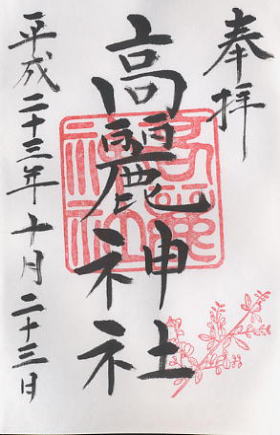 奉拝
高麗神社
平成二十三年十月二十三日